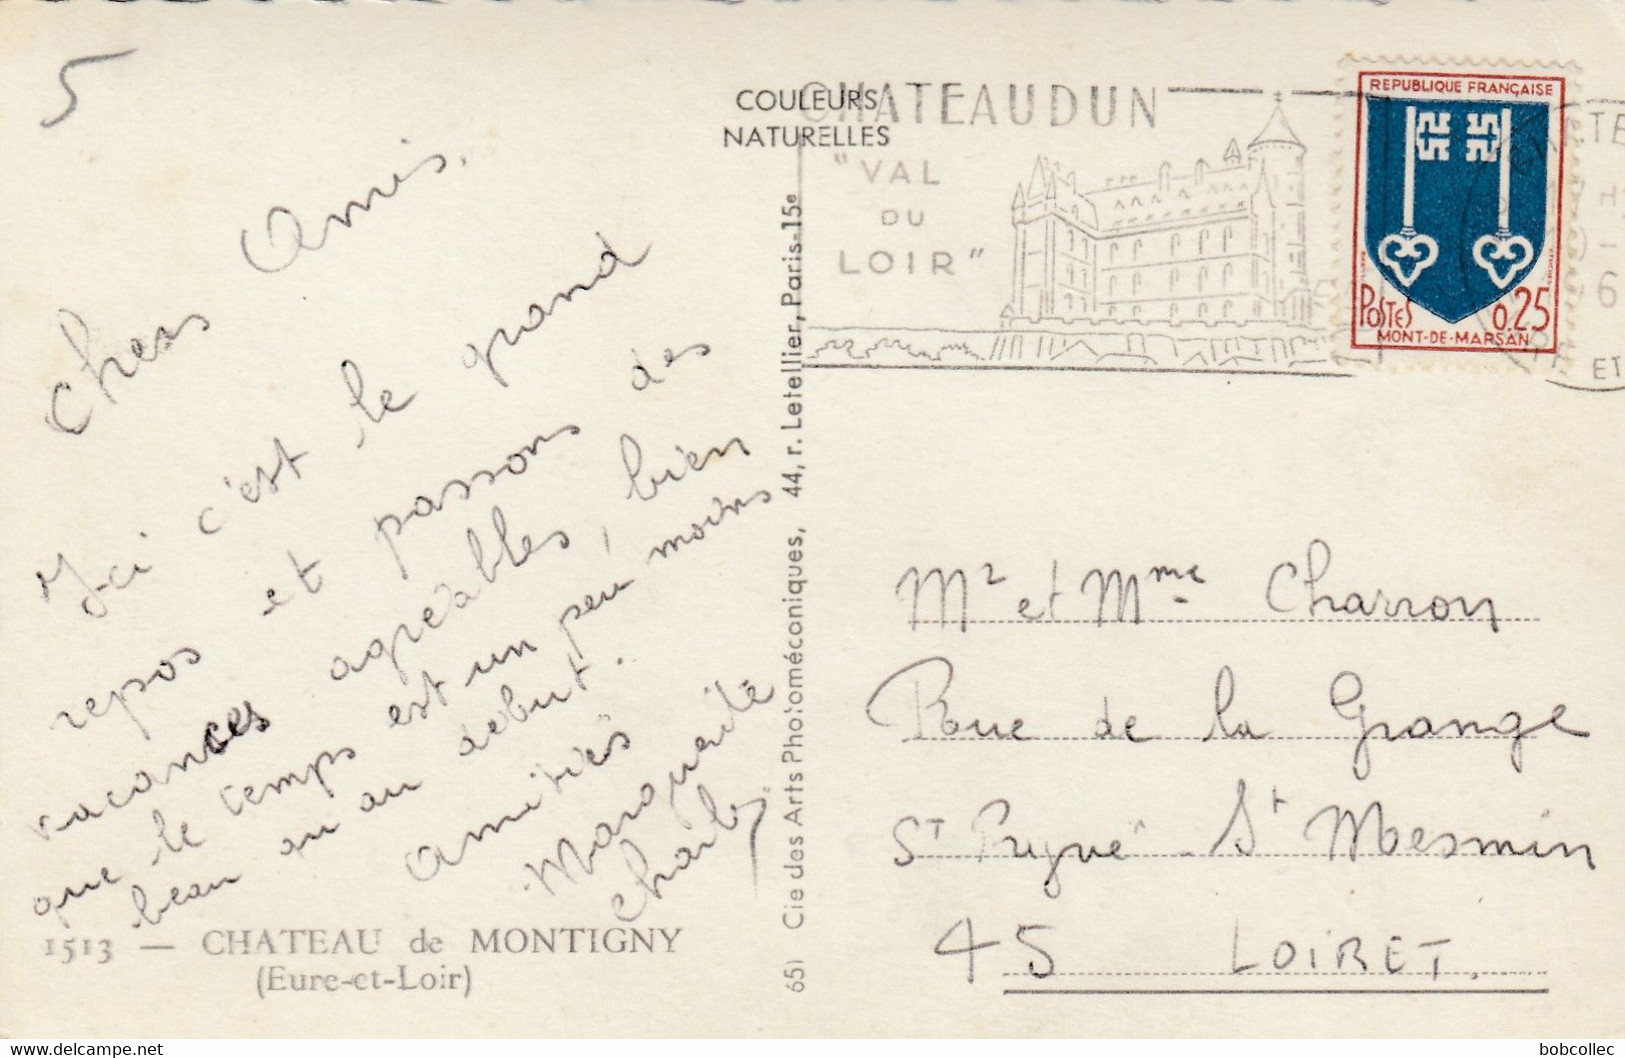 5
Chers Amis,
Ici c'est le grand
repos et passons des
vacances agréables, bien
que le temps est un peu moins
beau qu'au début.
Amitiés
Marguerite
Charly
1513 — CHATEAU de MONTIGNY
(Eure-et-Loir)
COULEURS
NATURELLES
651 Cie des Arts Photomécaniques, 44, r. Letellier, Paris-15e
CHATEAUDUN
"VAL
DU
LOIR"
REPUBLIQUE FRANÇAISE
POSTES 0.25
MONT-DE-MARSAN
Mr et Mme Charron
Roue de la Grange
ST Pryvé St Mesmin
45 LOIRET.
www.delcampe.net
bobcollec